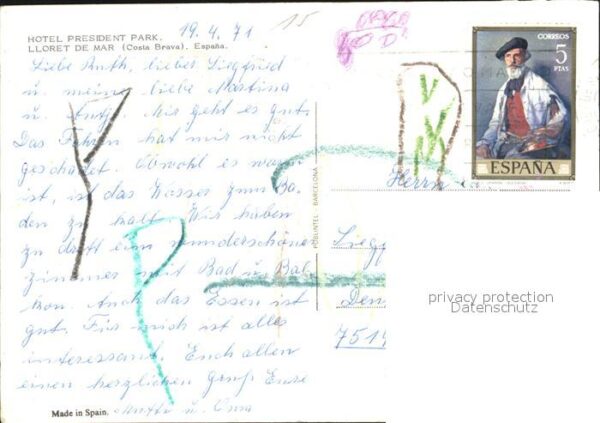 HOTEL PRESIDENT PARK.
LLORET DE MAR (Costa Brava). España.
19.4.71
15
Liebe Ruth, lieber Siegfried
u. meine liebe Martina
u. Antje. Mir geht es gut.
Das Fahren hat mir nicht
geschadet. Obwohl es warm
ist, ist das Wasser zum Ba-
den zu kalt. Wir haben
zu dritt ein wunderschönes
Zimmer mit Bad u. Bal-
kon. Auch das Essen ist
gut. Für mich ist alles
interessant. Euch allen
einen herzlichen Gruß Eure
Mutti u. Oma
Made in Spain.
POBLINTEL - BARCELONA
CORREOS
5
PTAS
ESPAÑA
Herrn
Siegf
Den
7514
privacy protection
Datenschutz